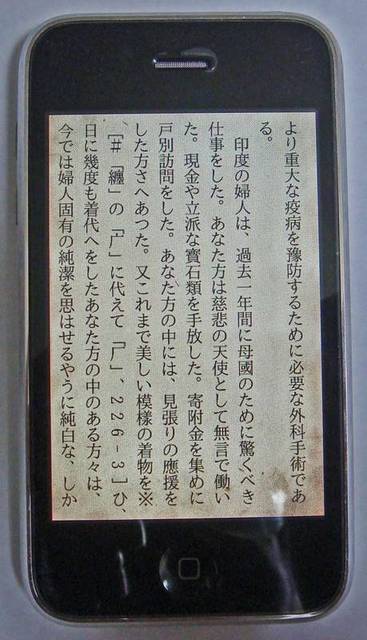 より重大な疫病を豫防するために必要な外科手術であ
る。
印度の婦人は、過去一年間に母國のために驚くべき
仕事をした。あなた方は慈悲の天使として無言で働い
た。現金や立派な寳石類を手放した。寄附金を集めに
戸別訪問をした。あなた方の中には、見張りの應援を
した方さへあつた。又これまで美しい模様の着物を※
［＃「纏」の「广」に代えて「厂」、２２６-３］ひ、
日に幾度も着代へをしたあなた方の中のある方々は、
今では婦人固有の純潔を思はせるやうに純白な、しか